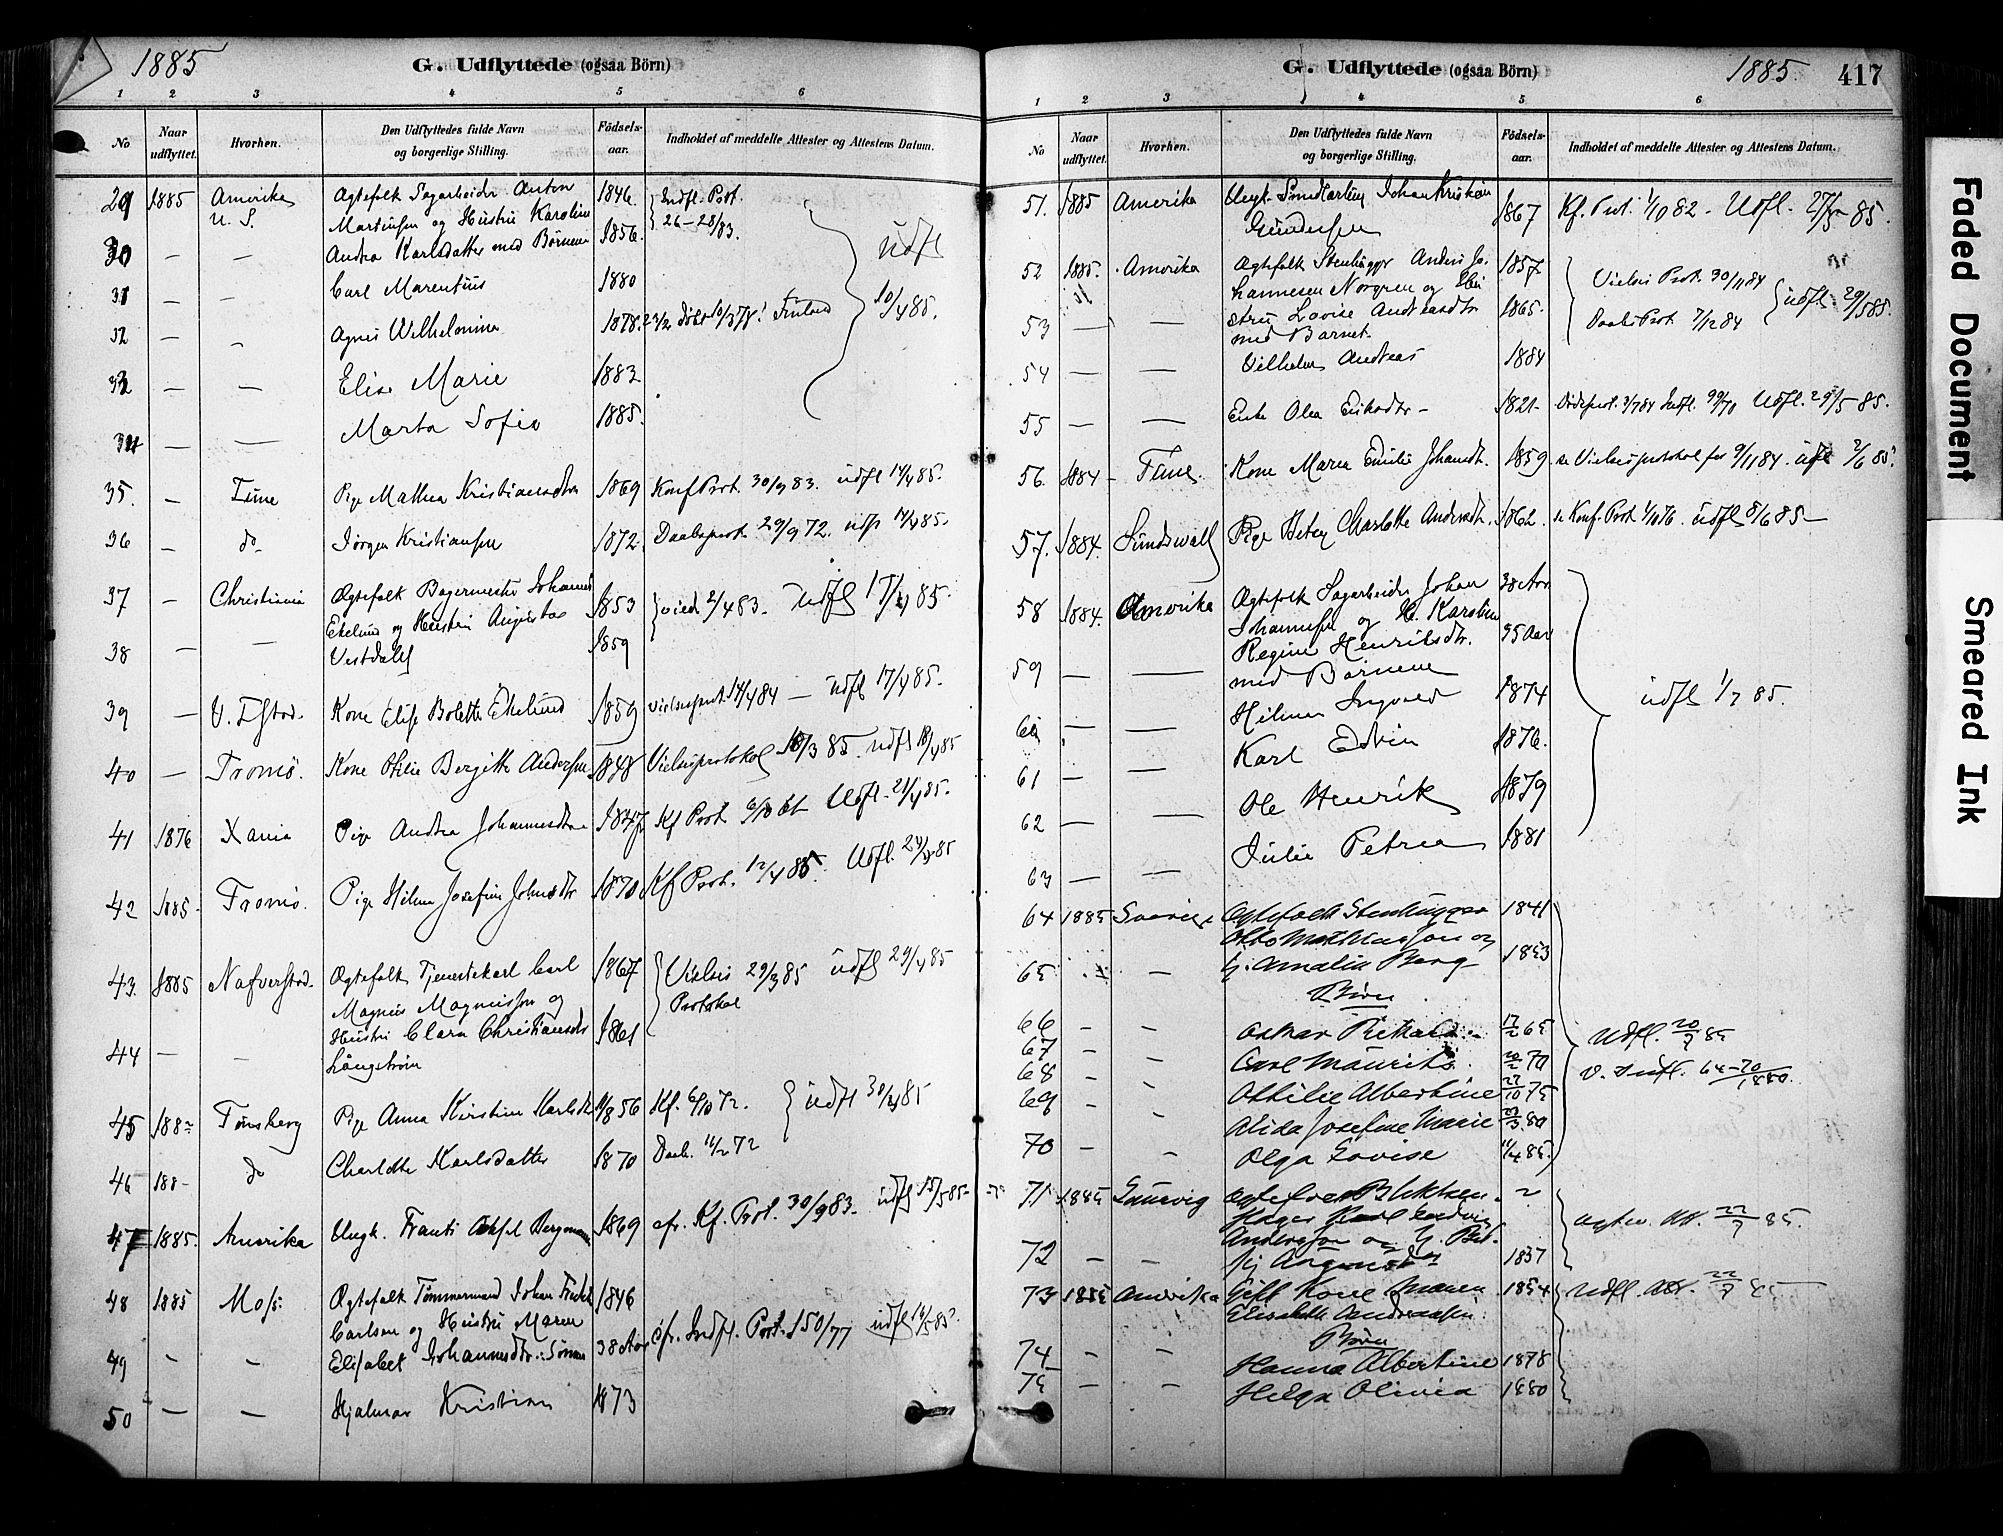 1885
G. Udflyttede (ogsaa Börn)
1 2 3 4 5 6
No
Naar udflyttet.
Hvorhen.
Den Udflyttedes fulde Navn og borgerlige Stilling.
Födsels-aar.
Indholdet af meddelte Attester og Attestens Datum.
29 1885 Amerika Ægtefolk Sagarbeider Anton 1846 Indfl. Prot.
U. S. Martinsen og Hustru Karoline 26-28/83.
30 — — Andrea Karlsdatter med Børnene 1856. Udfl
31 - - Carl Marentius 1880 10/4 85.
32 - - Agnes Wilhelmine 1878.
33 — — Elise Marie 1883
34 — — Marta Sofie 1885.
35. - Pige Mathea Kristiansdtr 1869 Konf Prot. 30/9 83. udfl 14/4 85.
36 - do Jørgen Kristiansen 1872. Daabsprot. 29/9 72. udfl 14/4 85.
37 - Christiania Ægtefolk Bagermester Johannes 1853 viede 2/4 83. Udfl 17/4 85
Ekelund og Hustru Augusta
38 — — Vestdahl 1859
39 — Kone Elise Bolette Ekelund 1859 Vielsesprot. 14/4 84 — Udfl 17/4 85.
40 — Tromö. Kone Otilie Bergitte Andersen 1848 Vielsesprotokol 18/3 85. Udfl 18/4 85
41 1876 Xania Pige Andrea Johannesdtr 1847 Kf Prot. 6/10 61 Udfl. 21/4 85.
42 1885 Tromö. Pige Hilma Josefine Johnsdtr 1870 Kf Prot. 12/4 85. Udfl. 24/4 85
43. 1885 Nafverstad Ægtefolk Tjenestekarl Carl 1867 Vielses 29/3 85 udfl 29/4 85
Magnus Magnusson og Protokol
Hustru Clara Christiansdtr 1861
44 — — Långström
45 188- Tønsberg Pige Anna Kirstine Karlsdtr 1856 Kf. 6/10 72. udfl 30/4 85
46 188- do Charlotte Karlsdatter 1870 Daab. 11/2 72
47 1885. Amerika Ungk. Frants Bergman 1869 cfr. Kf. Prot. 30/9 83. udfl 15/5 85
48 1885 Moss. Ægtefolk Tømmermand Johan 1846
Carlsen og Hustru Maren cfr. Indfl. Prot. 150/77 udfl 19/5 85
49 - - Elisabet Johannesdtr: Sønnen 38 Aar
50 — — Hjalmar Kristian 1873
G. Udflyttede (ogsaa Börn)
1885 417
1 2 3 4 5 6
No
Naar udflyttet.
Hvorhen.
Den Udflyttedes fulde Navn og borgerlige Stilling.
Födsels-aar.
Indholdet af meddelte Attester og Attestens Datum.
51. 1885 Amerika Ungk. Johan Kristian 1867 Kf. Prot. 1/10 82. Udfl. 27/5 85.
Gundersen
52 1885. Amerika Ægtefolk Stenhugger Anders Jo- 1857 Vielses Prot. 30/11 84
hannesen Norgren og
53 — — Lovise Andreasdtr 1865. Daabs Prot. 7/12 84 udfl: 29/5 85.
med Barnet.
54 — — Vilhelm Andreas 1884
55 — — Enke Olea Eriksdtr - 1821 Dødsprot. 3/7 84 Indfl. 99/70 Udfl. 29/5 85.
56. 1884 Kone Maren Emilie Johansdt. 1859 se Vielsesprotokol for 9/11 84. udfl 2/6 85.
57. 1884. Sundswall Pige Betsy Charlotte Andersdtr. 1862. se Konf. Prot. 1/10 76. udfl 8/6 85
58 1884. Amerika Ægtefolk Sagarbeider Johan 38 Aar
Johannesen og H. Karoline
59 — — Regine Henriksdtr. 35 Aar
med Børnene
60 — — Hilmar Ingvald 1874 udfl 1/7 85.
61 — — Karl Edvin 1876.
62 — — Ole Henrik 1879
63 — — Julie Petrea 1881
64 1885 Sverige Ægtefolk Stenhugger 1841
Otto Mathiasson og
65 - - h. Amalia Berg 1853
Børn
66 - - Oskar Rikard 17/2 65 Udfl. 20/7 85
67 - - Carl Maurits 20/2 70 v. Indfl. 64-70/1880.
68 - - Ottilie Albertine 27/10 75
69 - - Alida Josefine Marie 22/3 80
70 - - Olga Lovise 11/4 85.
71 1885 Laurvig
Andersson og h.
72 - - 1837
73 1885 Amerika Gift Kone Maren 1854 Udfl. Att. 22/7 85
Elisabeth Andreassen
Børn
74 - - Hanna Albertine 1878
75 - - Helga Olivia 1880
Faded Document
Smeared Ink